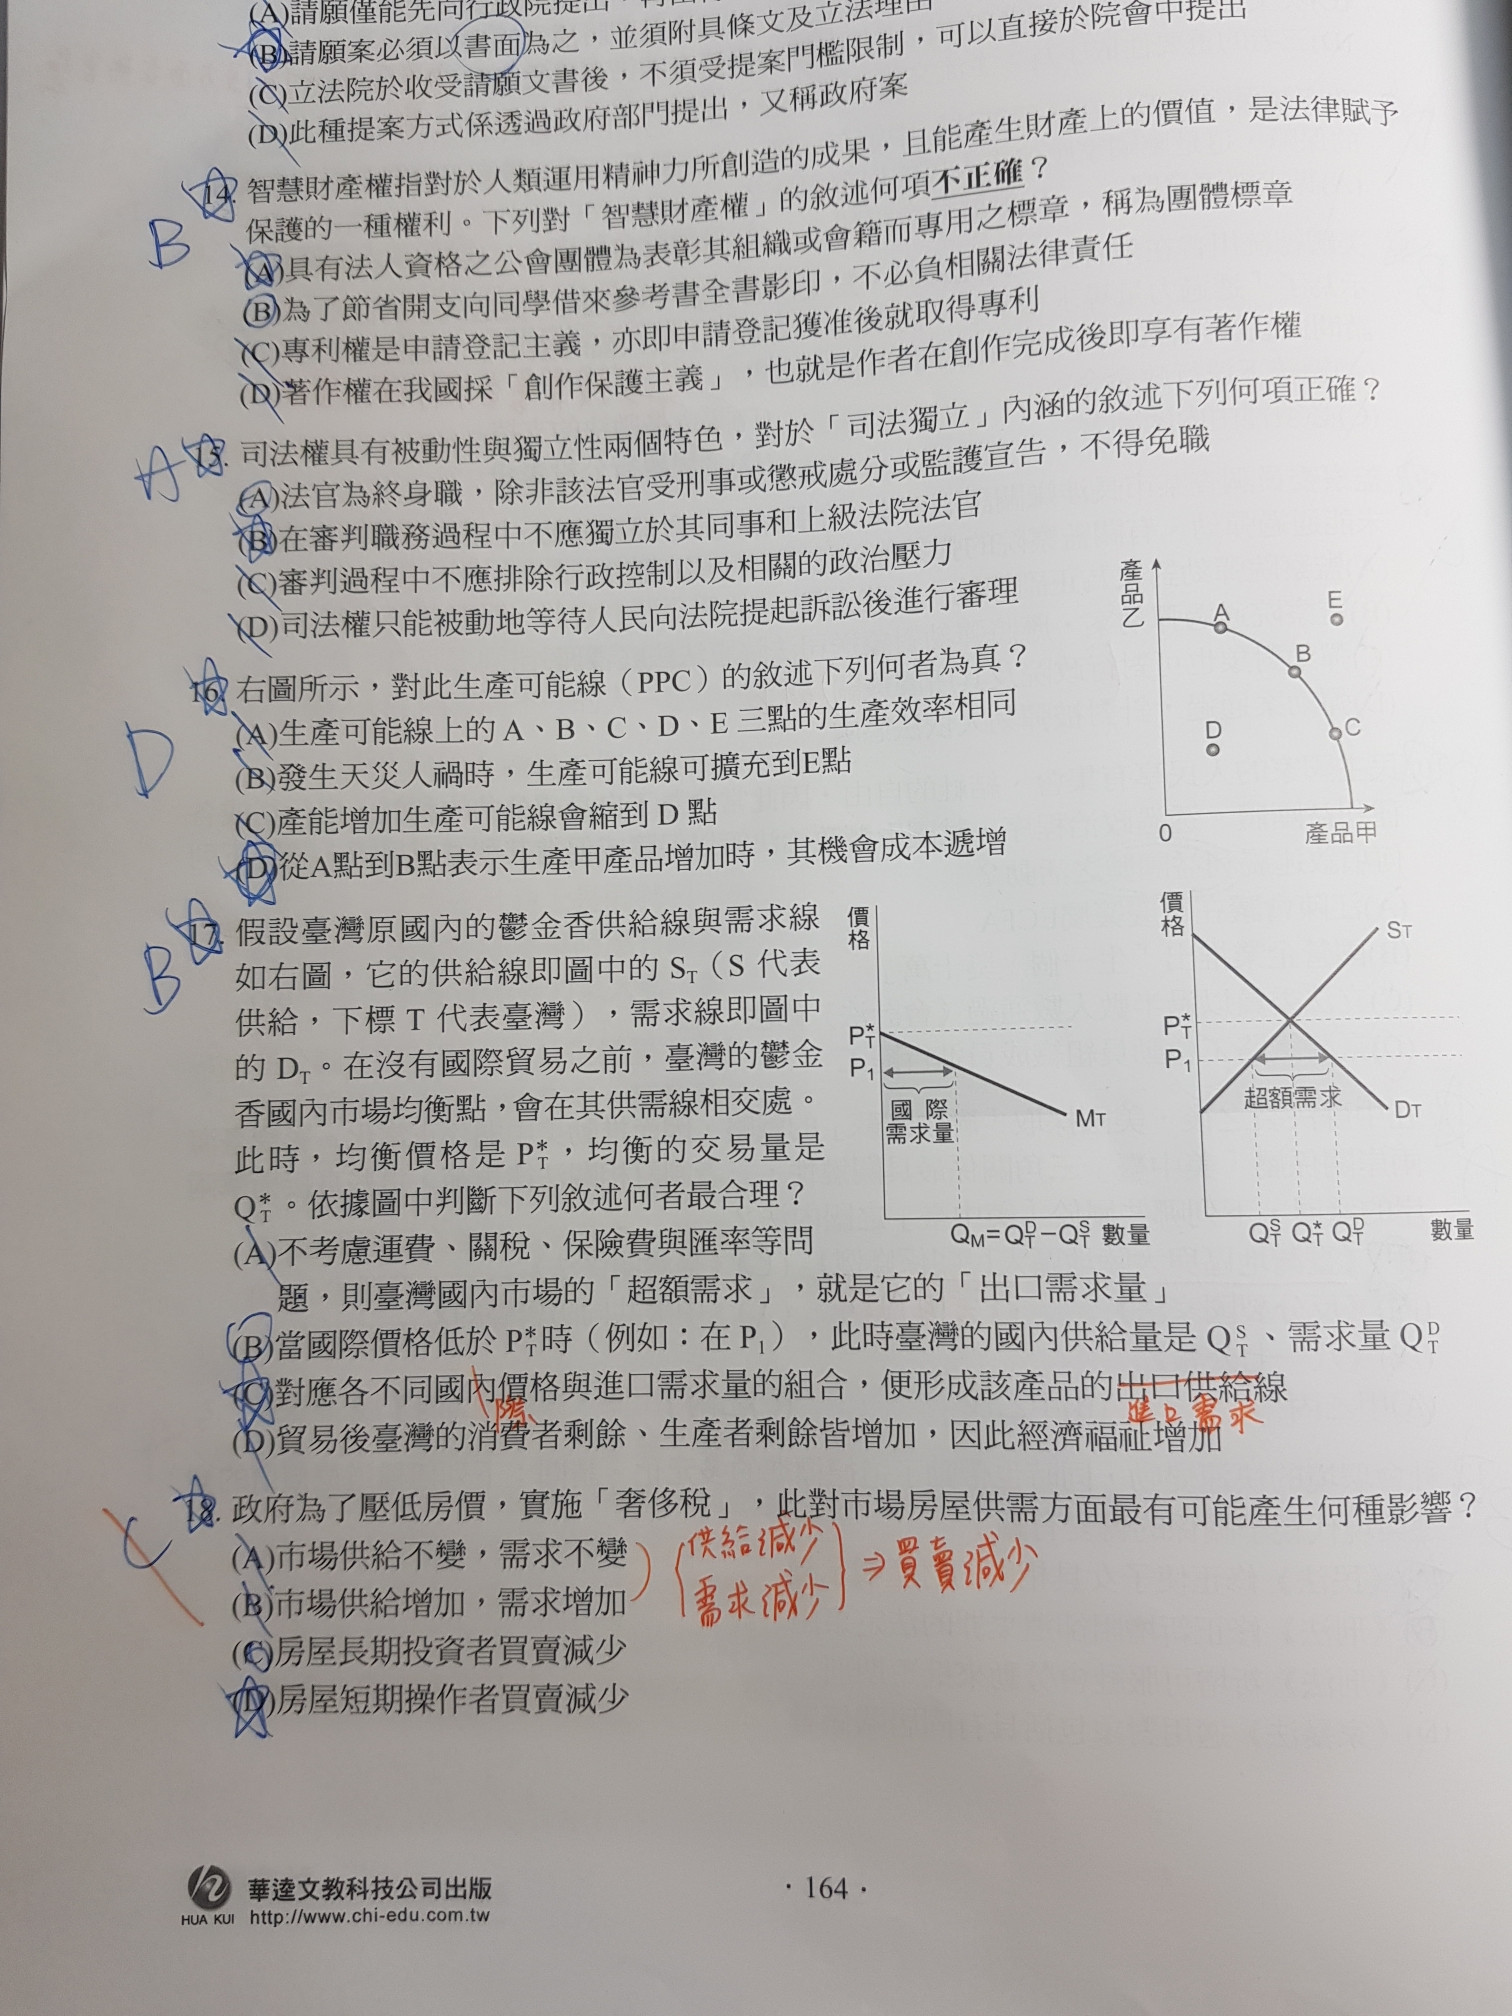 (A)請願僅能先向行政院提出
(B)請願案必須以書面為之，並須附具條文及立法理由
(C)立法院於收受請願文書後，不須受提案門檻限制，可以直接於院會中提出
(D)此種提案方式係透過政府部門提出，又稱政府案
B
14. 智慧財產權指對於人類運用精神力所創造的成果，且能產生財產上的價值，是法律賦予
保護的一種權利。下列對「智慧財產權」的敘述何項不正確？
(A)具有法人資格之公會團體為表彰其組織或會籍而專用之標章，稱為團體標章
(B)為了節省開支向同學借來參考書全書影印，不必負相關法律責任
(C)專利權是申請登記主義，亦即申請登記獲准後就取得專利
(D)著作權在我國採「創作保護主義」，也就是作者在創作完成後即享有著作權
A
15. 司法權具有被動性與獨立性兩個特色，對於「司法獨立」內涵的敘述下列何項正確？
(A)法官為終身職，除非該法官受刑事或懲戒處分或監護宣告，不得免職
(B)在審判職務過程中不應獨立於其同事和上級法院法官
(C)審判過程中不應排除行政控制以及相關的政治壓力
(D)司法權只能被動地等待人民向法院提起訴訟後進行審理
D
16. 右圖所示，對此生產可能線（PPC）的敘述下列何者為真？
(A)生產可能線上的 A、B、C、D、E 三點的生產效率相同
(B)發生天災人禍時，生產可能線可擴充到E點
(C)產能增加生產可能線會縮到 D 點
(D)從A點到B點表示生產甲產品增加時，其機會成本遞增
產品乙
A
E
B
D
C
0
產品甲
B
17. 假設臺灣原國內的鬱金香供給線與需求線
如右圖，它的供給線即圖中的 ST（S 代表
供給，下標 T 代表臺灣），需求線即圖中
的 DT。在沒有國際貿易之前，臺灣的鬱金
香國內市場均衡點，會在其供需線相交處。
此時，均衡價格是 P*T，均衡的交易量是
Q*T。依據圖中判斷下列敘述何者最合理？
(A)不考慮運費、關稅、保險費與匯率等問
題，則臺灣國內市場的「超額需求」，就是它的「出口需求量」
(B)當國際價格低於 P*T時（例如：在 P1），此時臺灣的國內供給量是 QST、需求量 QDT
(C)對應各不同國內價格與進口需求量的組合，便形成該產品的出口供給線
際
進口需求
(D)貿易後臺灣的消費者剩餘、生產者剩餘皆增加，因此經濟福祉增加
價格
P*T
P1
國際
需求量
MT
QM=QDT−QST 數量
價格
ST
P*T
P1
超額需求
DT
QST Q*T QDT 數量
C
18. 政府為了壓低房價，實施「奢侈稅」，此對市場房屋供需方面最有可能產生何種影響？
(A)市場供給不變，需求不變
(B)市場供給增加，需求增加
(C)房屋長期投資者買賣減少
(D)房屋短期操作者買賣減少
供給減少
需求減少
⇒買賣減少
華逵文教科技公司出版
HUA KUI http://www.chi-edu.com.tw
·164·